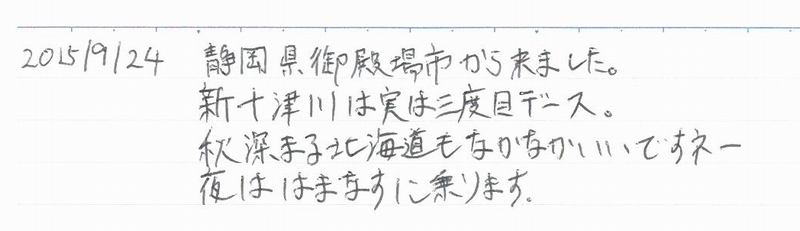 2015/9/24 静岡県御殿場市から来ました。
新十津川は実は三度目デース。
秋深まる北海道もなかなかいいですネー
夜ははまなすに乗ります。